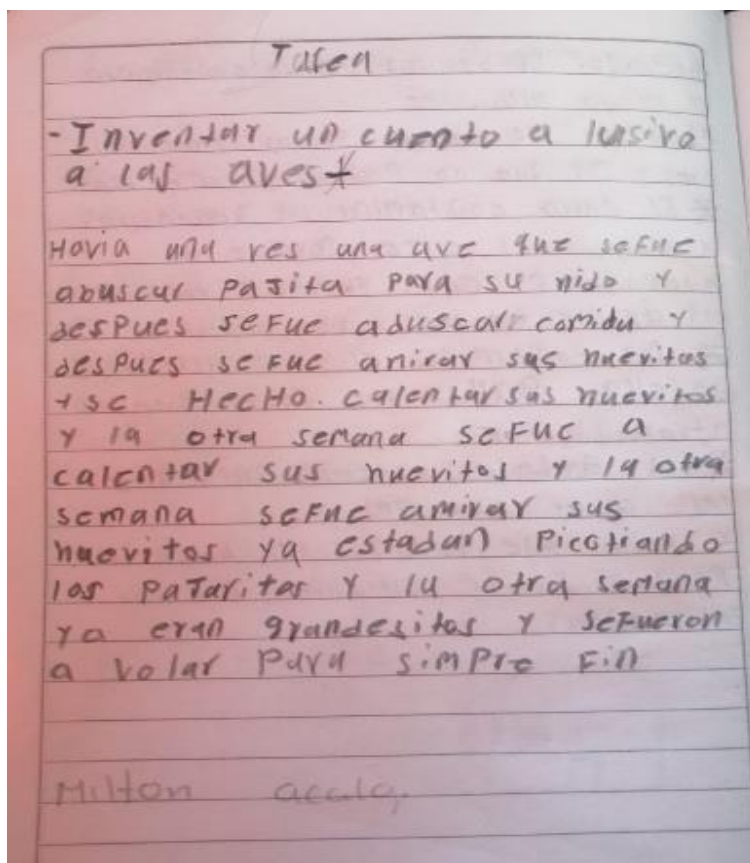 Tarea
- Inventar un cuento a lusivo
a las aves
Havia una ves una ave que seFue
abuscar paJita para su nido y
desPues seFue aduscar comida y
desPues seFue amirar sus huevitos
y se HecHo. calentar sus huevitos
y la otra semana seFue a
calentar sus huevitos y la otra
semana seFue amirar sus
huevitos ya estadan Picotiando
los paJaritos y la otra semana
ya eran grandesitos y seFueron
a volar para simpre Fin
Milton